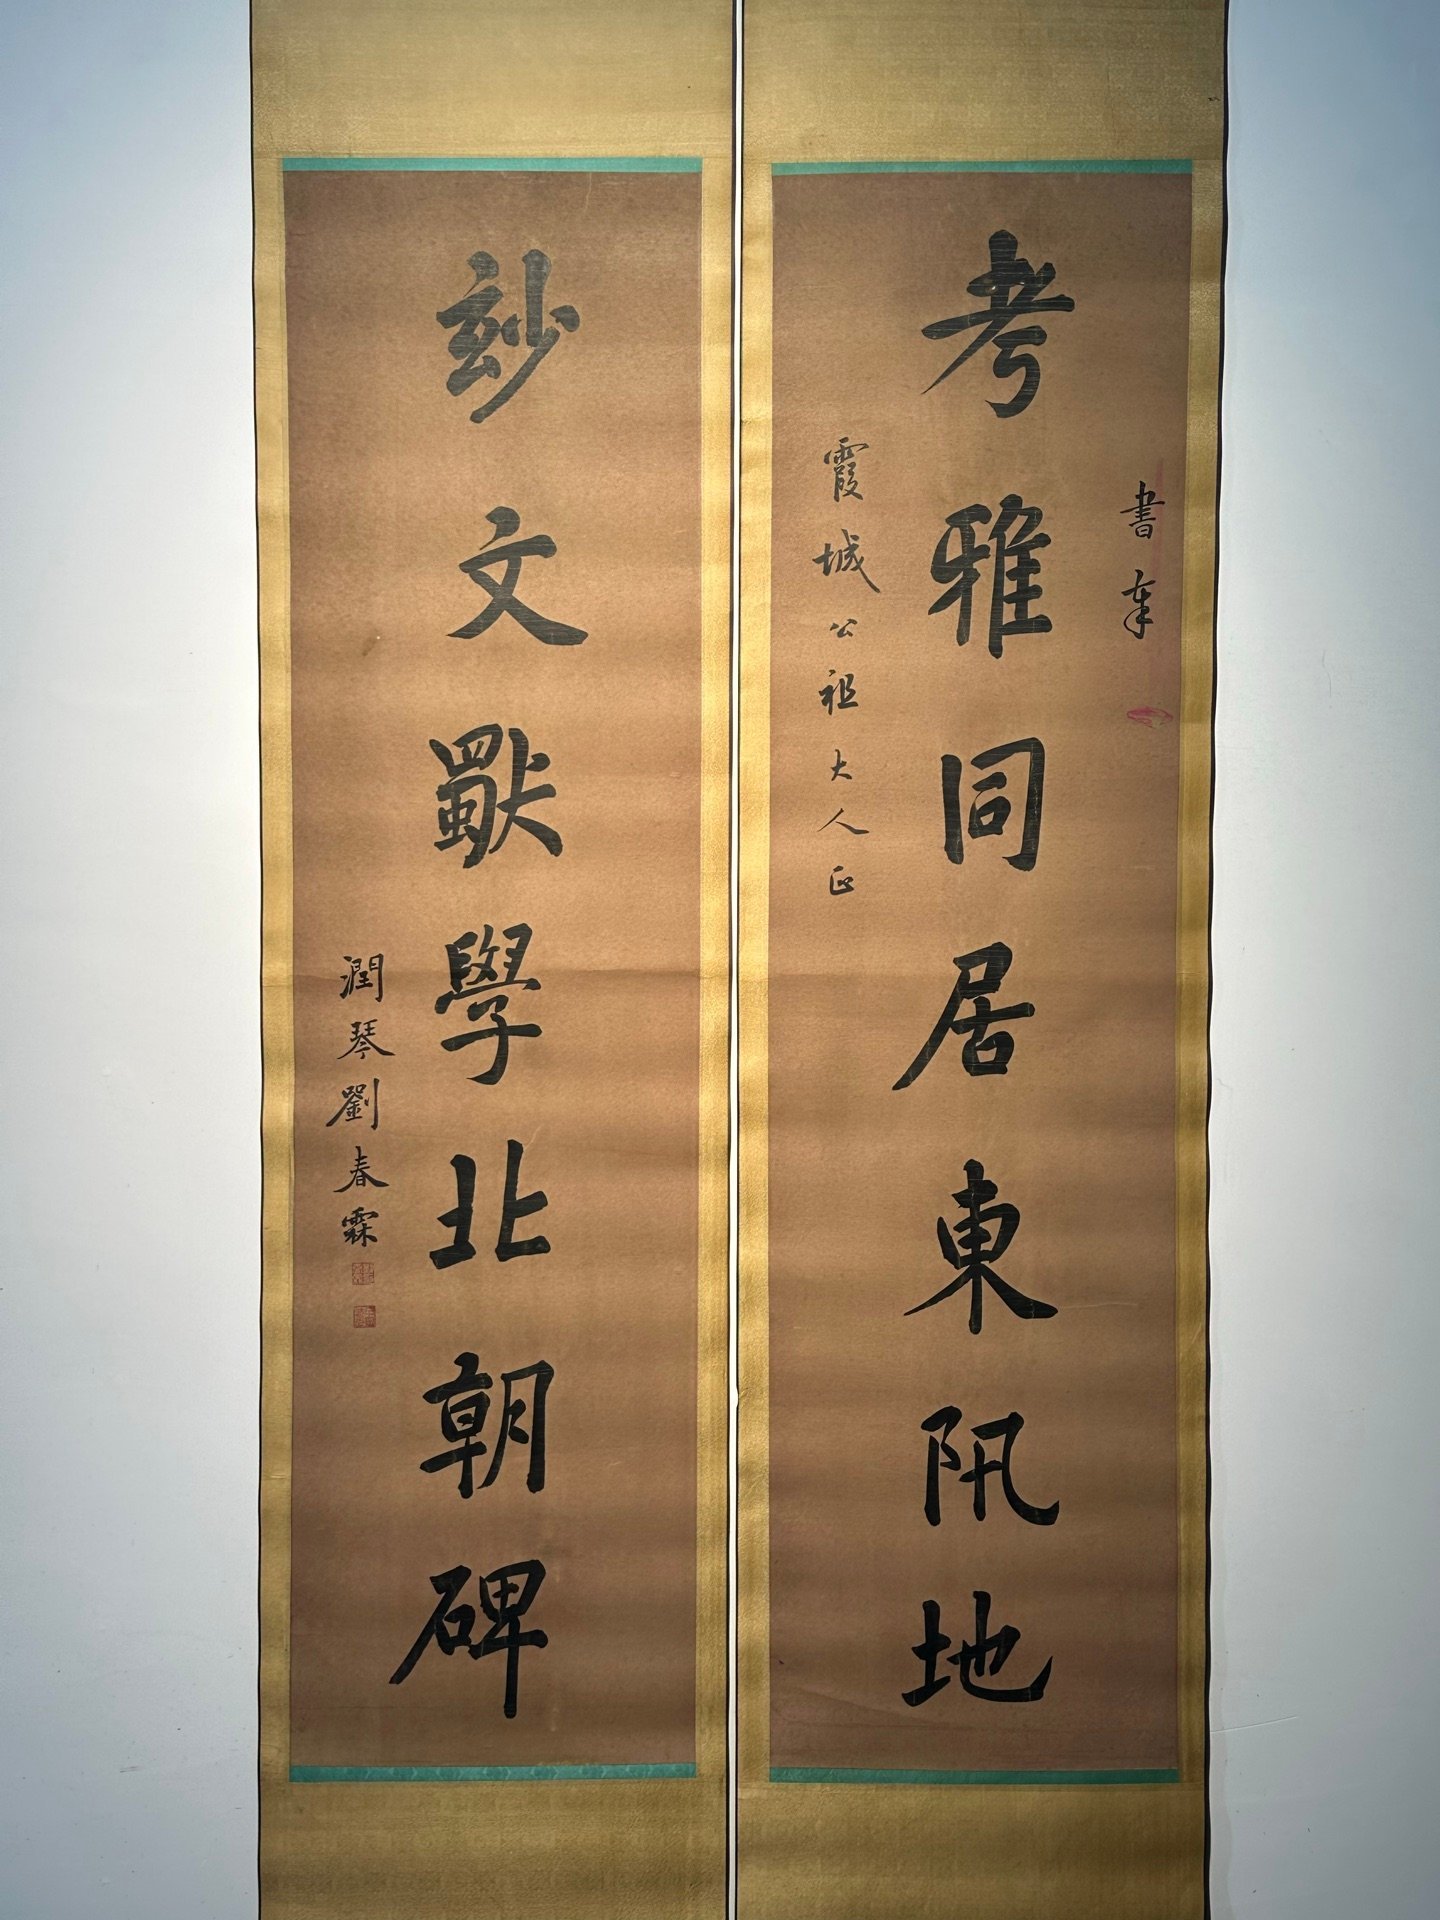 書奉
考雅同居東阠地
霞城公祖大人正
玅文獨學北朝碑
潤琴劉春霖